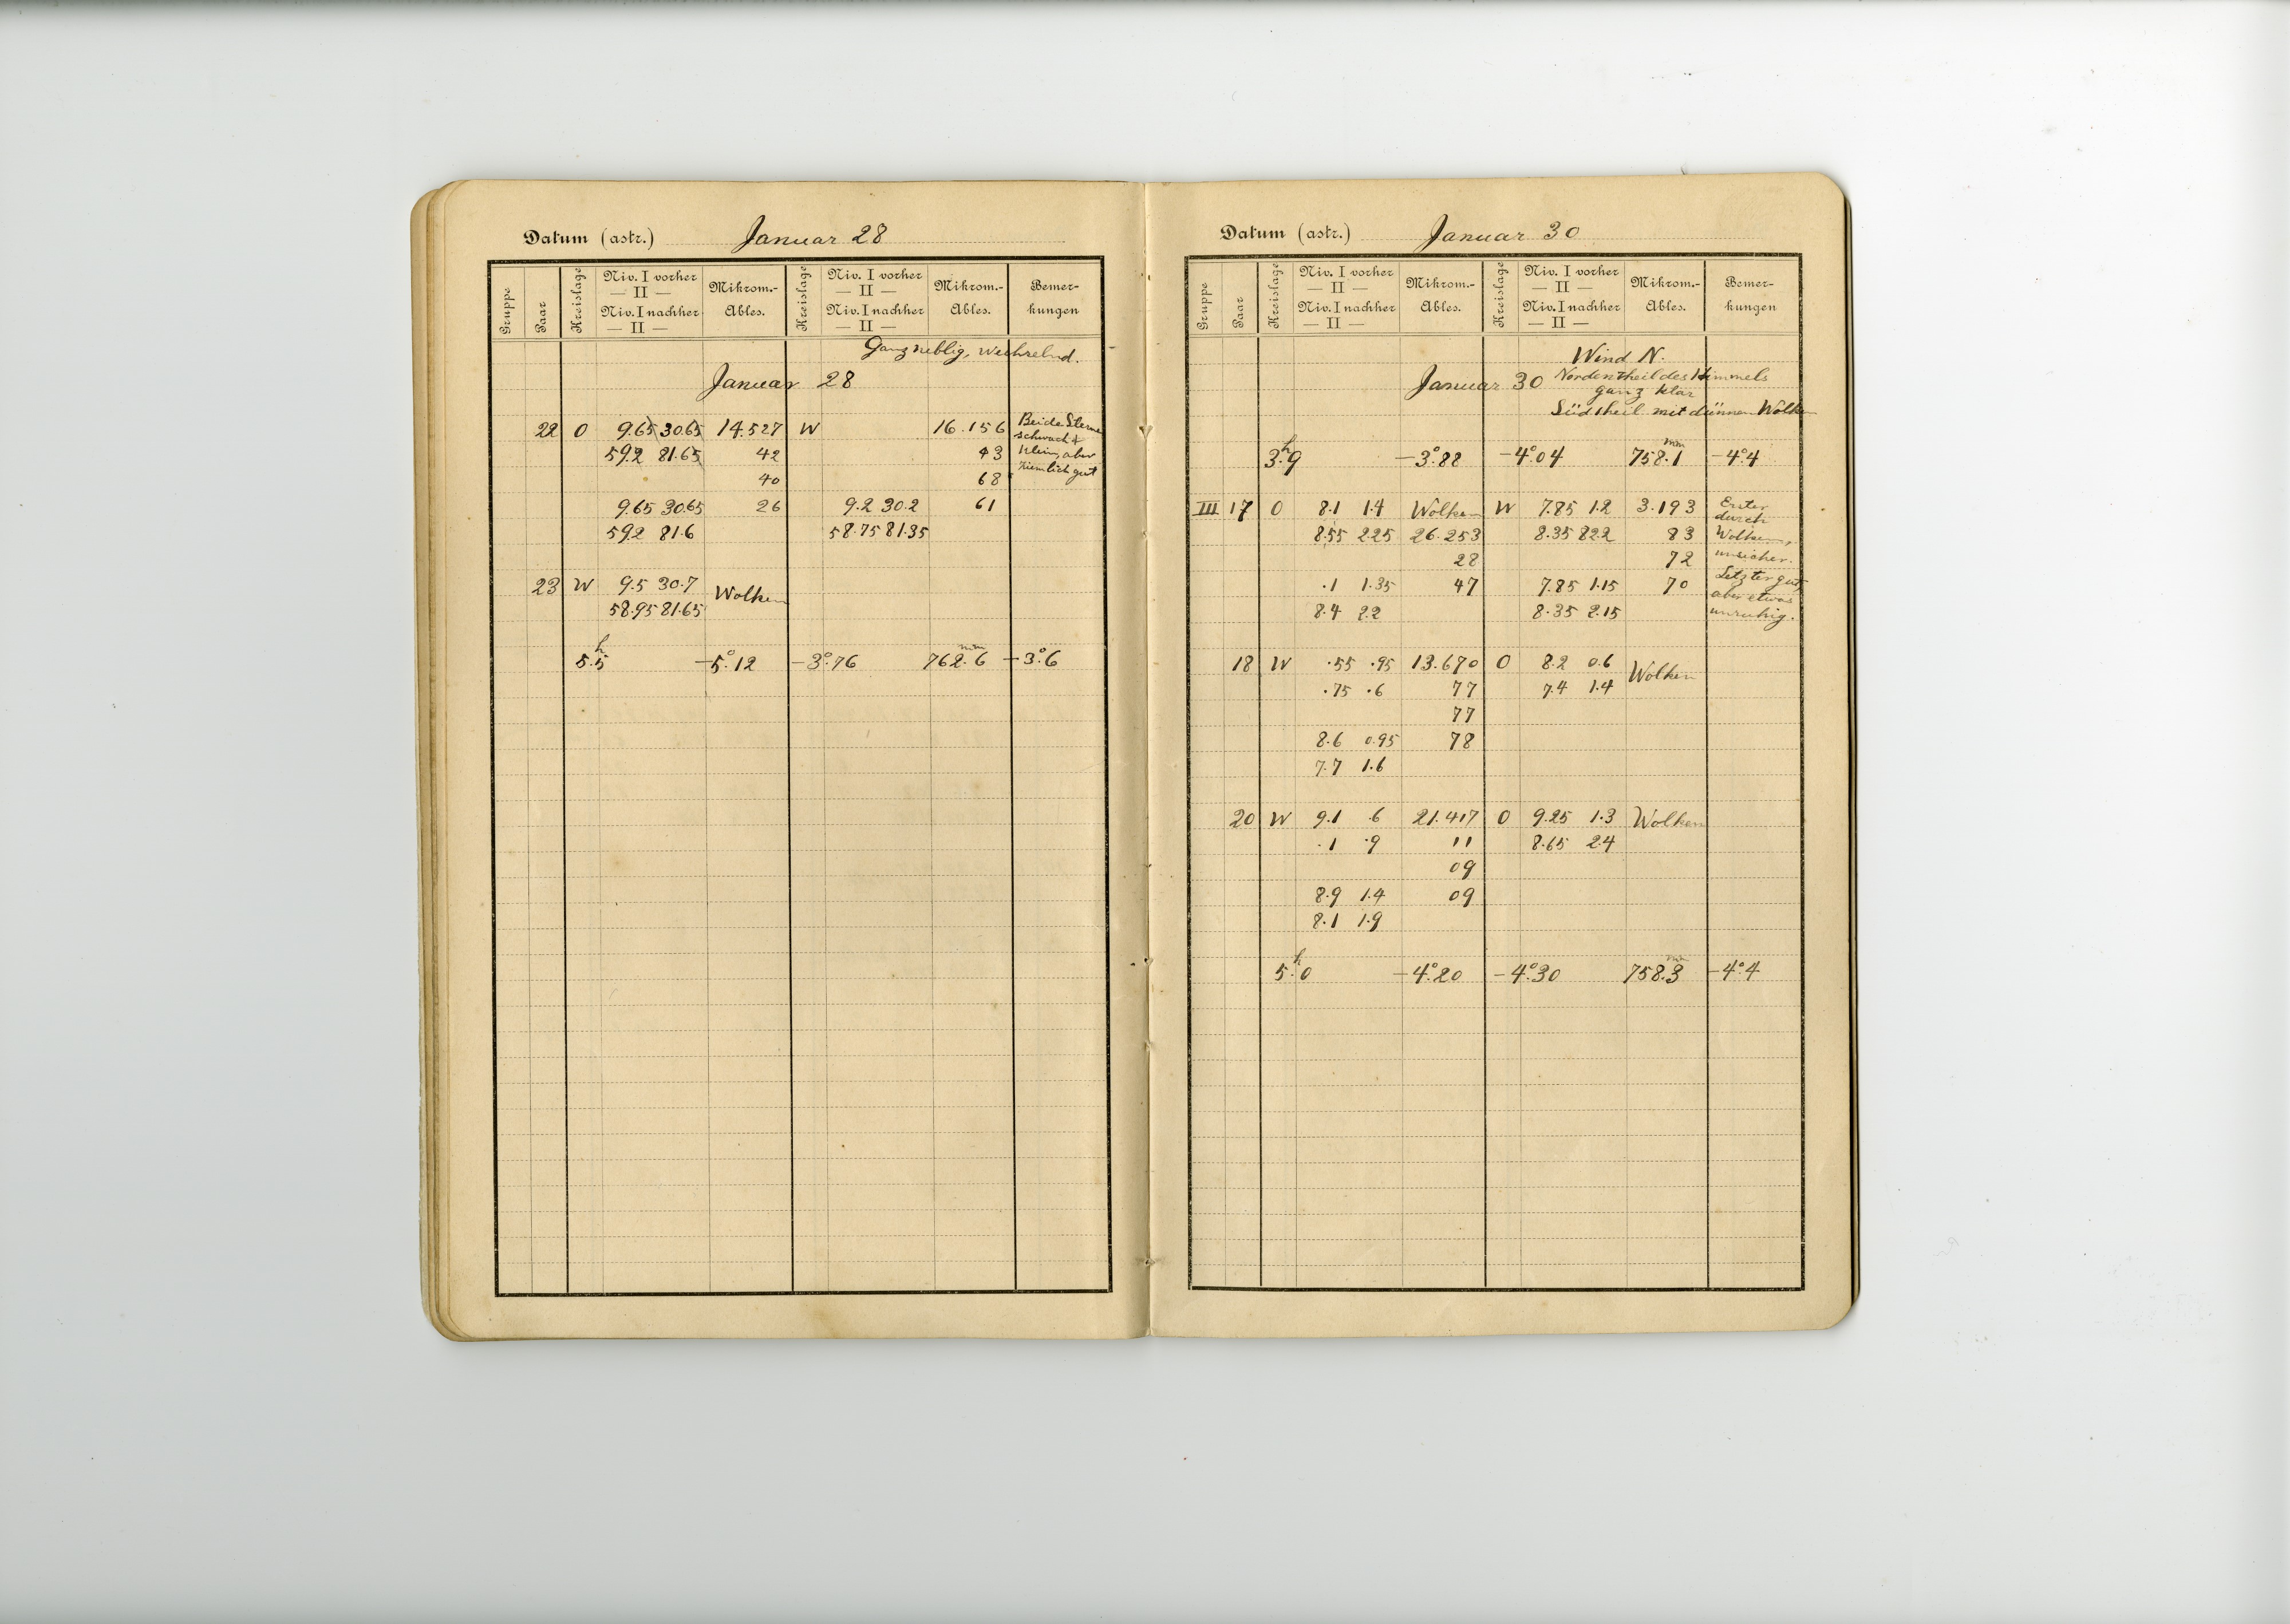 Datum (astr.) Januar 28
Gruppe Paar Kreislage Niv. I vorher Mikrom.- Kreislage Niv. I vorher Mikrom.- Bemer-
— II — — II —
Niv. I nachher Ables. Niv. I nachher Ables. kungen
— II — — II —
Ganz neblig, wechselnd.
Januar 28
22 O 9.65 30.65 14.527 W 16.156 Beide Sterne
schwach &
59.2 81.65 42 43 klein, aber
ziemlich gut
40 68
9.65 30.65 26 9.2 30.2 61
59.2 81.6 58.75 81.35
23 W 9.5 30.7 Wolken
58.95 81.65
5.h5 −5°.12 −3°.76 762.6 mm −3°.6
Datum (astr.) Januar 30
Gruppe Paar Kreislage Niv. I vorher Mikrom.- Kreislage Niv. I vorher Mikrom.- Bemer-
— II — — II —
Niv. I nachher Ables. Niv. I nachher Ables. kungen
— II — — II —
Wind N.
Januar 30 Nordenztheil des Himmels
ganz klar
Südtheil mit dünnen Wolken
3.h9 −3°.88 −4°.04 758.1 mm −4°.4
III 17 O 8.1 1.4 Wolken W 7.85 1.2 3.193 Erster
durch
8.55 2.25 26.253 8.35 82.2 83 Wolken,
28 72 unsicher.
.1 1.35 47 7.85 1.15 70 Letzter gut,
aber etwas
8.4 2.2 8.35 2.15 unruhig.
18 W .55 .95 13.670 O 8.2 0.6 Wolken
.75 .6 77 7.4 1.4
77
8.6 0.95 78
7.7 1.6
20 W 9.1 .6 21.417 O 9.25 1.3 Wolken
.1 .9 11 8.65 2.4
09
8.9 1.4 09
8.1 1.9
5.h0 −4°.20 −4°.30 758.3 mm −4°.4